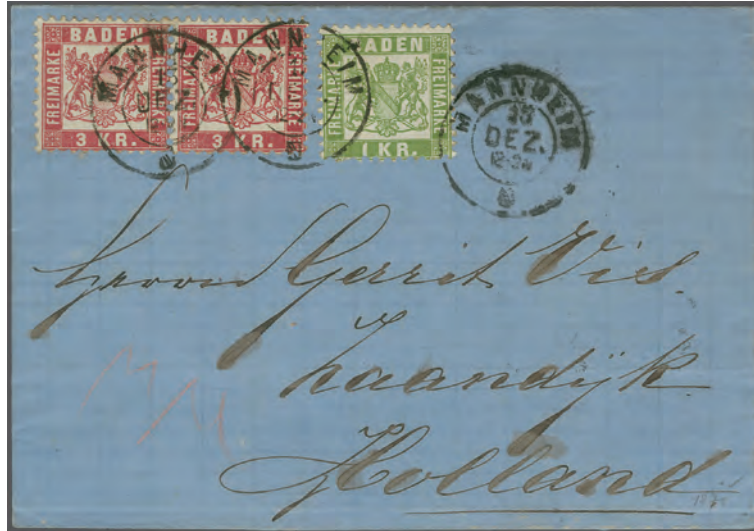 BADEN FREIMARKE FREIMARKE 3 KR.
BADEN FREIMARKE FREIMARKE 3 KR.
BADEN FREIMARKE FREIMARKE 1 KR.
MANNHEIM DEZ.
MANNHEIM
MANNHEIM DEZ.
Herrn Gerrit Vis.
Zaandijk
Holland